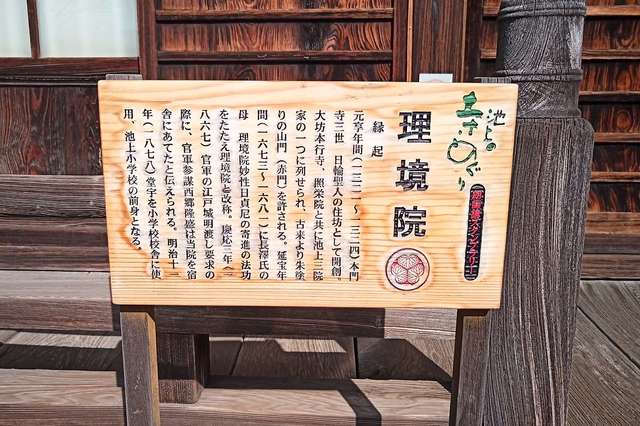 池上の
寺めぐり
理境院
縁起
元亨年間(一三二一～一三二四)本門
寺三世 日輪聖人の住坊として開創。
大坊本行寺、照栄院と共に池上三院
家の一つに列せられ、古来より朱塗
りの山門(赤門)を許される。延宝年
間(一六七三～一六八一)に長澤氏の
母 理境院妙性日貞尼の寄進の法功
をたたえ理境院と改称。慶応三年(一
八六七)官軍の江戸城明渡し要求の
際に、官軍参謀西郷隆盛は当院を宿
舎にあてたと伝えられる。明治十一
年(一八七八)堂宇を小学校校舎に使
用、池上小学校の前身となる。